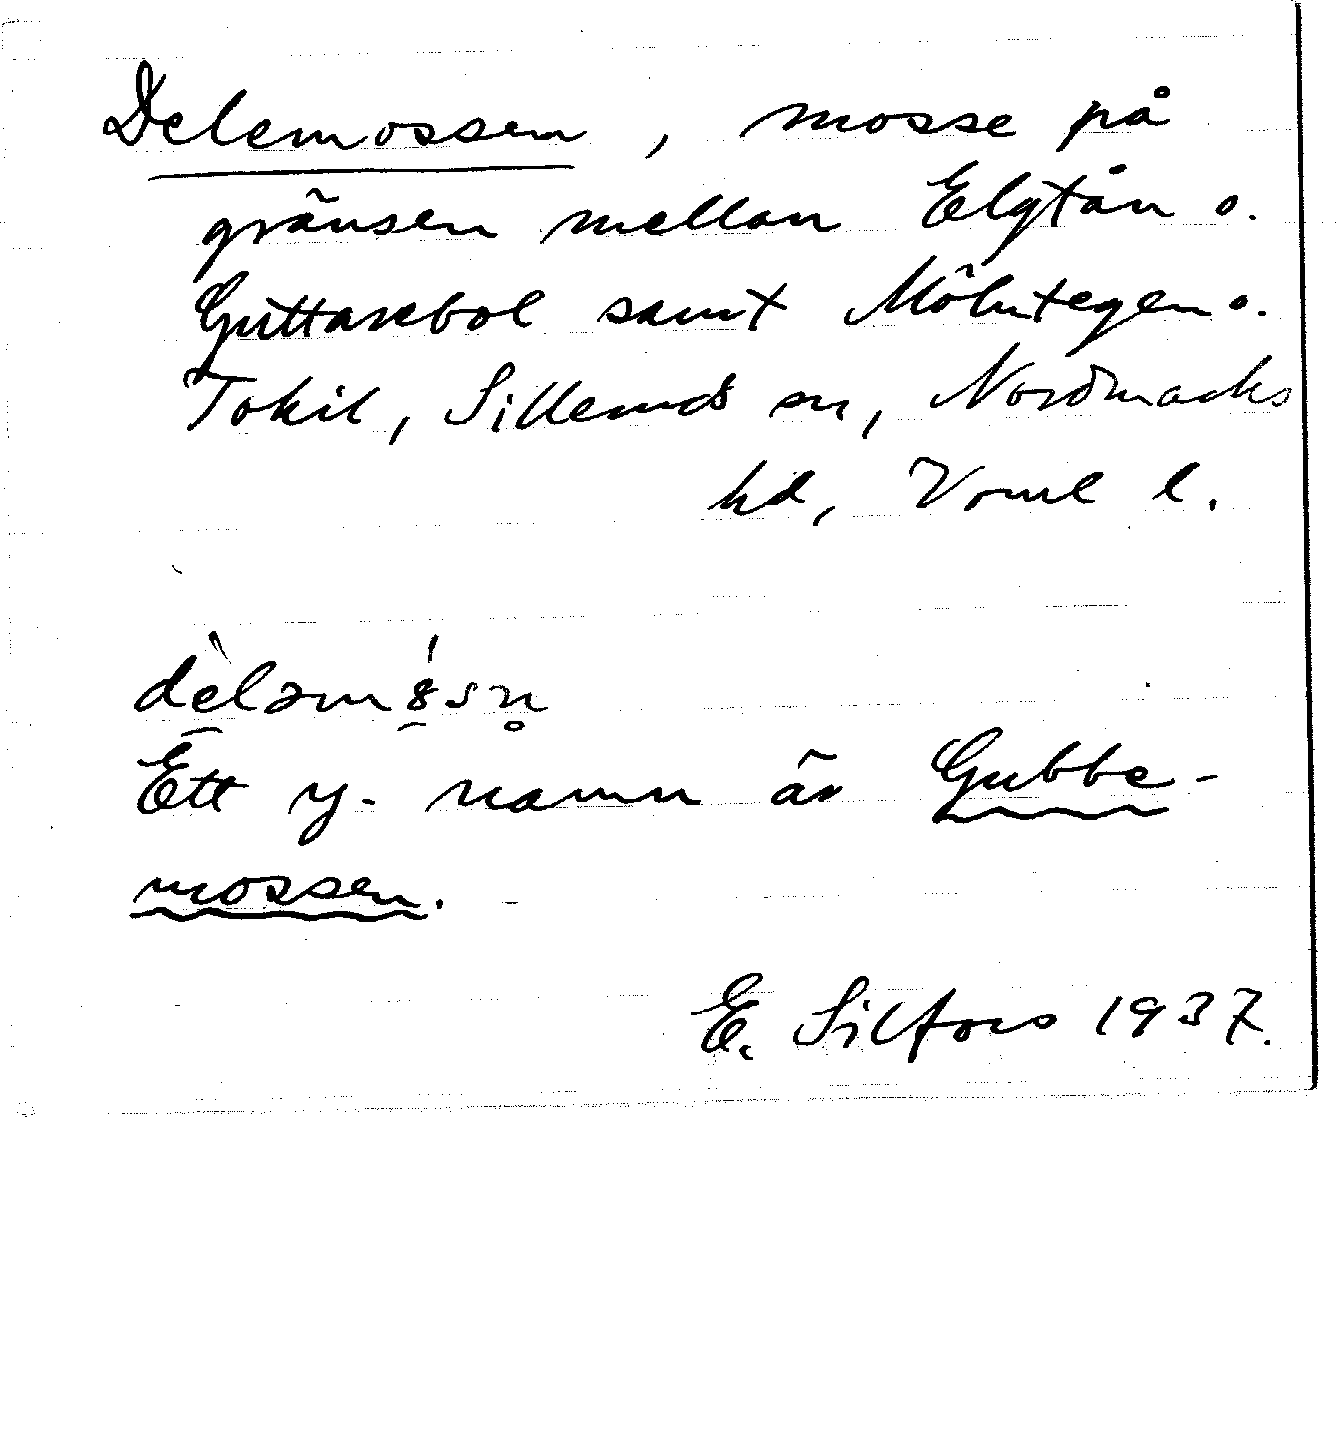 Delemossen, mosse på
gränsen mellan Elgtån o.
Guttarebol samt Mölntegen o.
Tokil, Sillerud sn, Nordmarks
hd, Vrml l.
Ett y. namn är Gubbe-
mossen.
E. Silfors 1937.